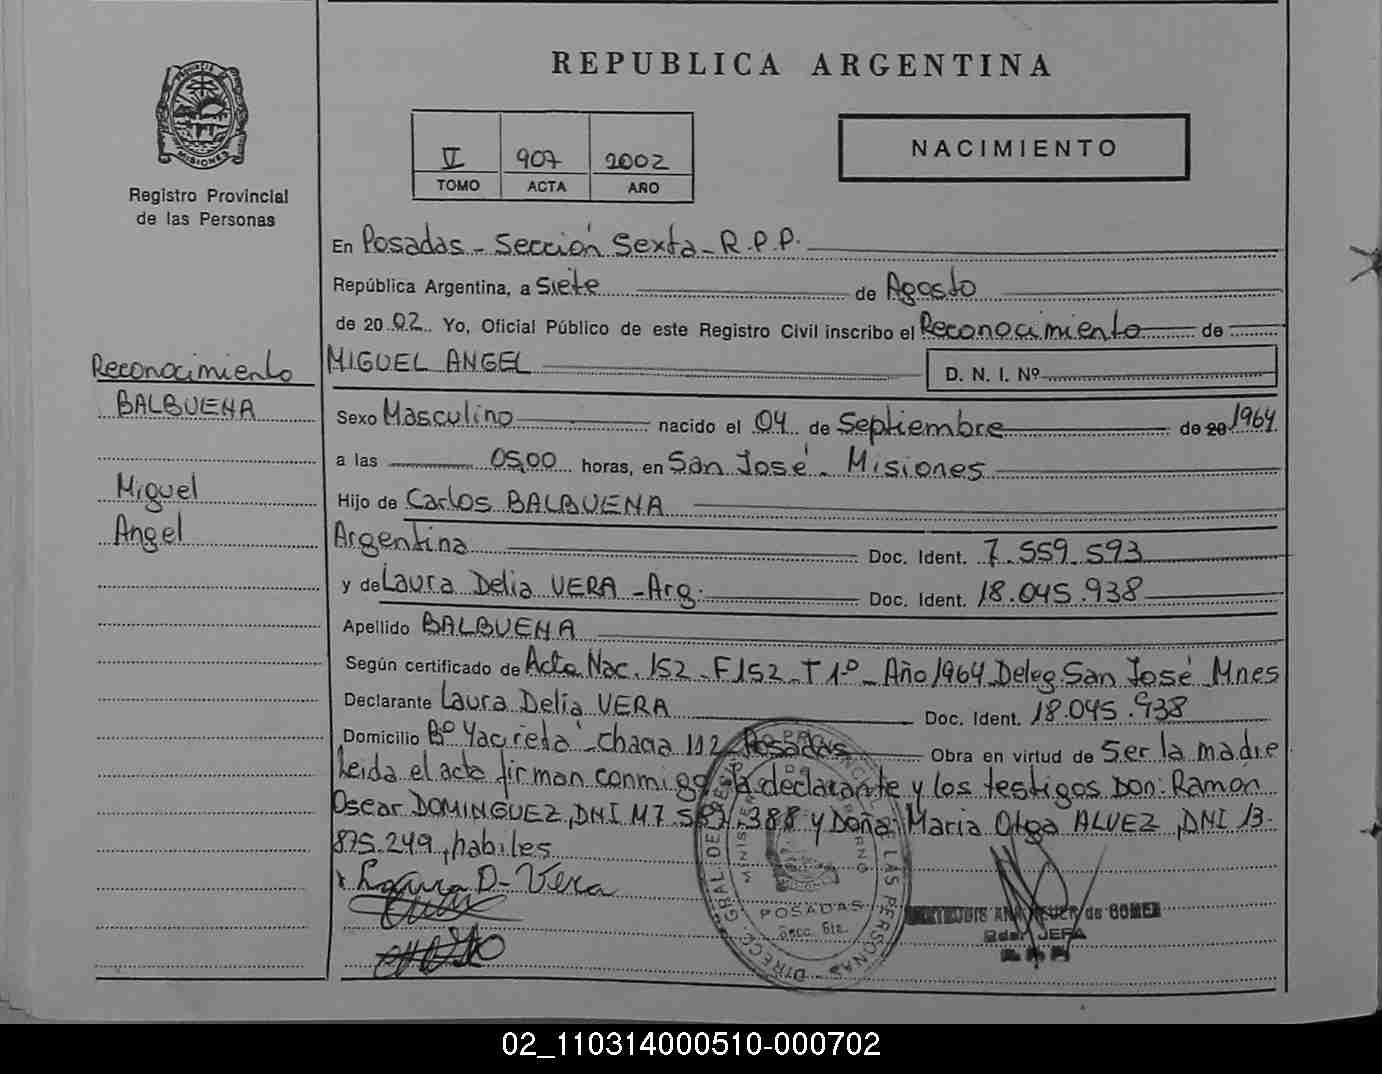 REPUBLICA ARGENTINA
PROVINCIA DE
MISIONES
Registro Provincial
de las Personas
II 907 2002
TOMO ACTA AÑO
NACIMIENTO
En Posadas - Sección Sexta - R.P.P.
República Argentina, a Siete de Agosto
de 20 02 Yo, Oficial Público de este Registro Civil inscribo el Reconocimiento de
MIGUEL ANGEL D. N. I. Nº
Reconocimiento
BALBUENA
Miguel
Angel
Sexo Masculino nacido el 04 de Septiembre de 20 1964
a las 05,00 horas, en San José - Misiones
Hijo de Carlos BALBUENA
Argentina Doc. Ident. 7.559.593
y de Laura Delia VERA - Arg. Doc. Ident. 18.045.938
Apellido BALBUENA
Según certificado de Acta Nac. 152 - F152 - T 1º - Año 1964 Deleg. San José Mnes
Declarante Laura Delia VERA Doc. Ident. 18.045.938
Domicilio Bº Yacireta - chacra 112 - Posadas Obra en virtud de Ser la madre
Leida el acta firman conmigo la declarante y los testigos Don: Ramon
Oscar DOMINGUEZ, DNI M7.587.388 y Doña: Maria Olga ALVEZ, DNI 13.
875.249, habiles
x Laura D- Vera
DIREC. GRAL. DE REG. PROVINCIAL DE LAS PERSONAS
POSADAS
Secc. 6ta.
de GOMEZ
JEFA
02_110314000510-000702